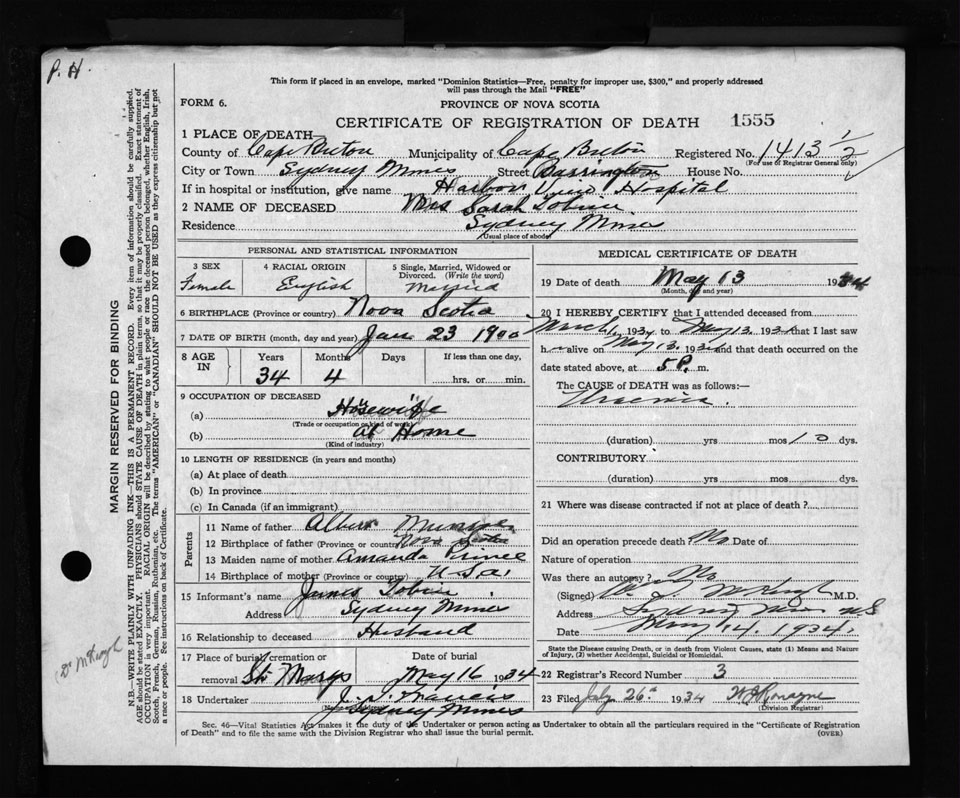 P. H.
This form if placed in an envelope, marked "Dominion Statistics—Free, penalty for improper use, $300," and properly addressed
will pass through the Mail "FREE"
FORM 6.
PROVINCE OF NOVA SCOTIA
CERTIFICATE OF REGISTRATION OF DEATH 1555
1 PLACE OF DEATH
County of Cape Breton Municipality of Cape Breton Registered No. 1413 1/2
(For use of Registrar General only)
City or Town Sydney Mines Street Barrington House No.
If in hospital or institution, give name Harbor View Hospital
2 NAME OF DECEASED Mrs Sarah Tobin
Residence Sydney Mines
(Usual place of abode)
PERSONAL AND STATISTICAL INFORMATION
3 SEX 4 RACIAL ORIGIN 5 Single, Married, Widowed or
Divorced. (Write the word)
Female English Married
6 BIRTHPLACE (Province or country) Nova Scotia
7 DATE OF BIRTH (month, day and year) Jan 23 1900
8 AGE IN Years Months Days If less than one day,
34 4 hrs. or min.
9 OCCUPATION OF DECEASED
(a) Housewife
(Trade or occupation or kind of work)
(b) at Home
(Kind of industry)
10 LENGTH OF RESIDENCE (in years and months)
(a) At place of death
(b) In province
(c) In Canada (if an immigrant)
Parents
11 Name of father Albert
12 Birthplace of father (Province or country) Nova Scotia
13 Maiden name of mother Amanda Prince
14 Birthplace of mother (Province or country) U.S.a.
15 Informant's name James Tobin
Address Sydney Mines
16 Relationship to deceased Husband
17 Place of burial, cremation or Date of burial
removal St. Marys May 16 1934
18 Undertaker J. J. Francis
Sydney Mines
MEDICAL CERTIFICATE OF DEATH
19 Date of death May 13 1934
(Month, day and year)
20 I HEREBY CERTIFY that I attended deceased from
March 1, 1934 to May 13, 1934 that I last saw
h alive on May 13, 1934 and that death occurred on the
date stated above, at 5 P. m.
The CAUSE of DEATH was as follows:—
Uraemia.
(duration) yrs mos 10 dys.
CONTRIBUTORY
(duration) yrs mos dys.
21 Where was disease contracted if not at place of death?
Did an operation precede death No Date of
Nature of operation
Was there an autopsy? No
(Signed) M.D.
Address Sydney Mines N.S
Date May 14. 1934.
State the Disease causing Death, or in death from Violent Causes, state (1) Means and Nature
of Injury, (2) whether Accidental, Suicidal or Homicidal.
22 Registrar's Record Number 3
23 Filed July 26th 1934
(Division Registrar)
Sec. 46—Vital Statistics Act makes it the duty of the Undertaker or person acting as Undertaker to obtain all the particulars required in the "Certificate of Registration
of Death" and to file the same with the Division Registrar who shall issue the burial permit. (OVER)
MARGIN RESERVED FOR BINDING
N.B.—WRITE PLAINLY WITH UNFADING INK—THIS IS A PERMANENT RECORD. Every item of information should be carefully supplied.
AGE should be stated EXACTLY. PHYSICIANS should STATE CAUSE OF DEATH in plain terms, so that it may be properly classified. Exact statement of
OCCUPATION is very important. RACIAL ORIGIN will be described by stating to what people or race the deceased person belonged, whether English, Irish,
Scotch, French, German, Russian, Ruthenian, etc. The terms "AMERICAN" or "CANADIAN" SHOULD NOT BE USED as they express citizenship but not
a race or people. See instructions on back of Certificate.